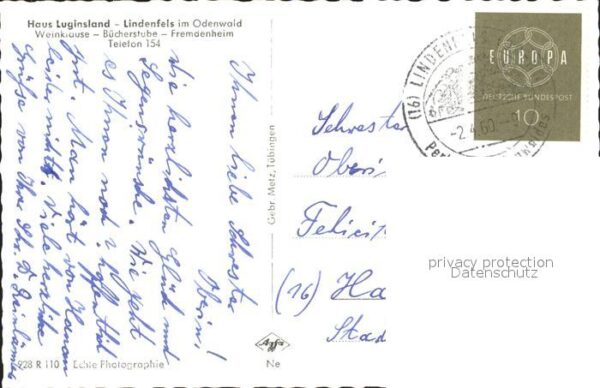 Haus Luginsland - Lindenfels im Odenwald
Weinklause - Bücherstube - Fremdenheim
Telefon 154
Ihnen liebe Schwester
Oberin!
die herzlichsten Glück und
Segenswünsche. Wie geht
es Ihnen noch? hoffentlich
gut. Man hört von Hanau
leider nichts. Viele herzliche
Grüße von Ihrer
928 R 110 Echte Photographie
Gebr. Metz, Tübingen
Agfa
Ne
(16) LINDENF
-2.4.60.-9
EUROPA
DEUTSCHE BUNDESPOST
10
Schwester
Oberin
Felici
(16) Ha
Stad
privacy protection
Datenschutz